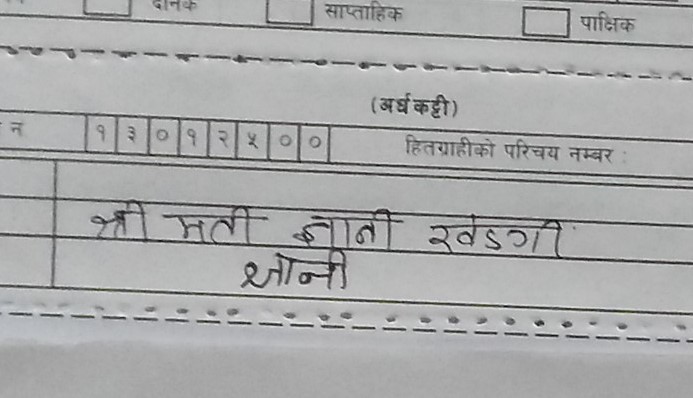 दैनिक साप्ताहिक पाक्षिक
(अर्धकट्टी)
न १३०१२५०० हितग्राहीको परिचय नम्बर :
श्री मती ज्ञानी खडगी